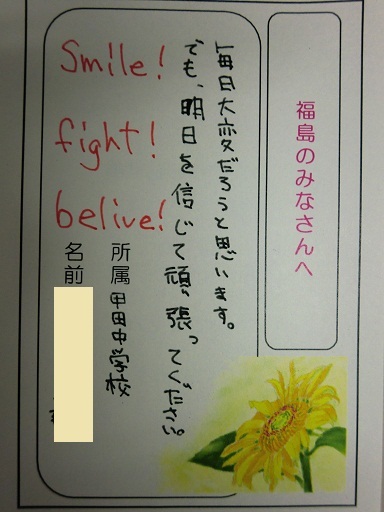 福島のみなさんへ
毎日大変だろうと思います。
でも、明日を信じて頑張ってください。
Smile!
fight!
belive!
所属 甲田中学校
名前